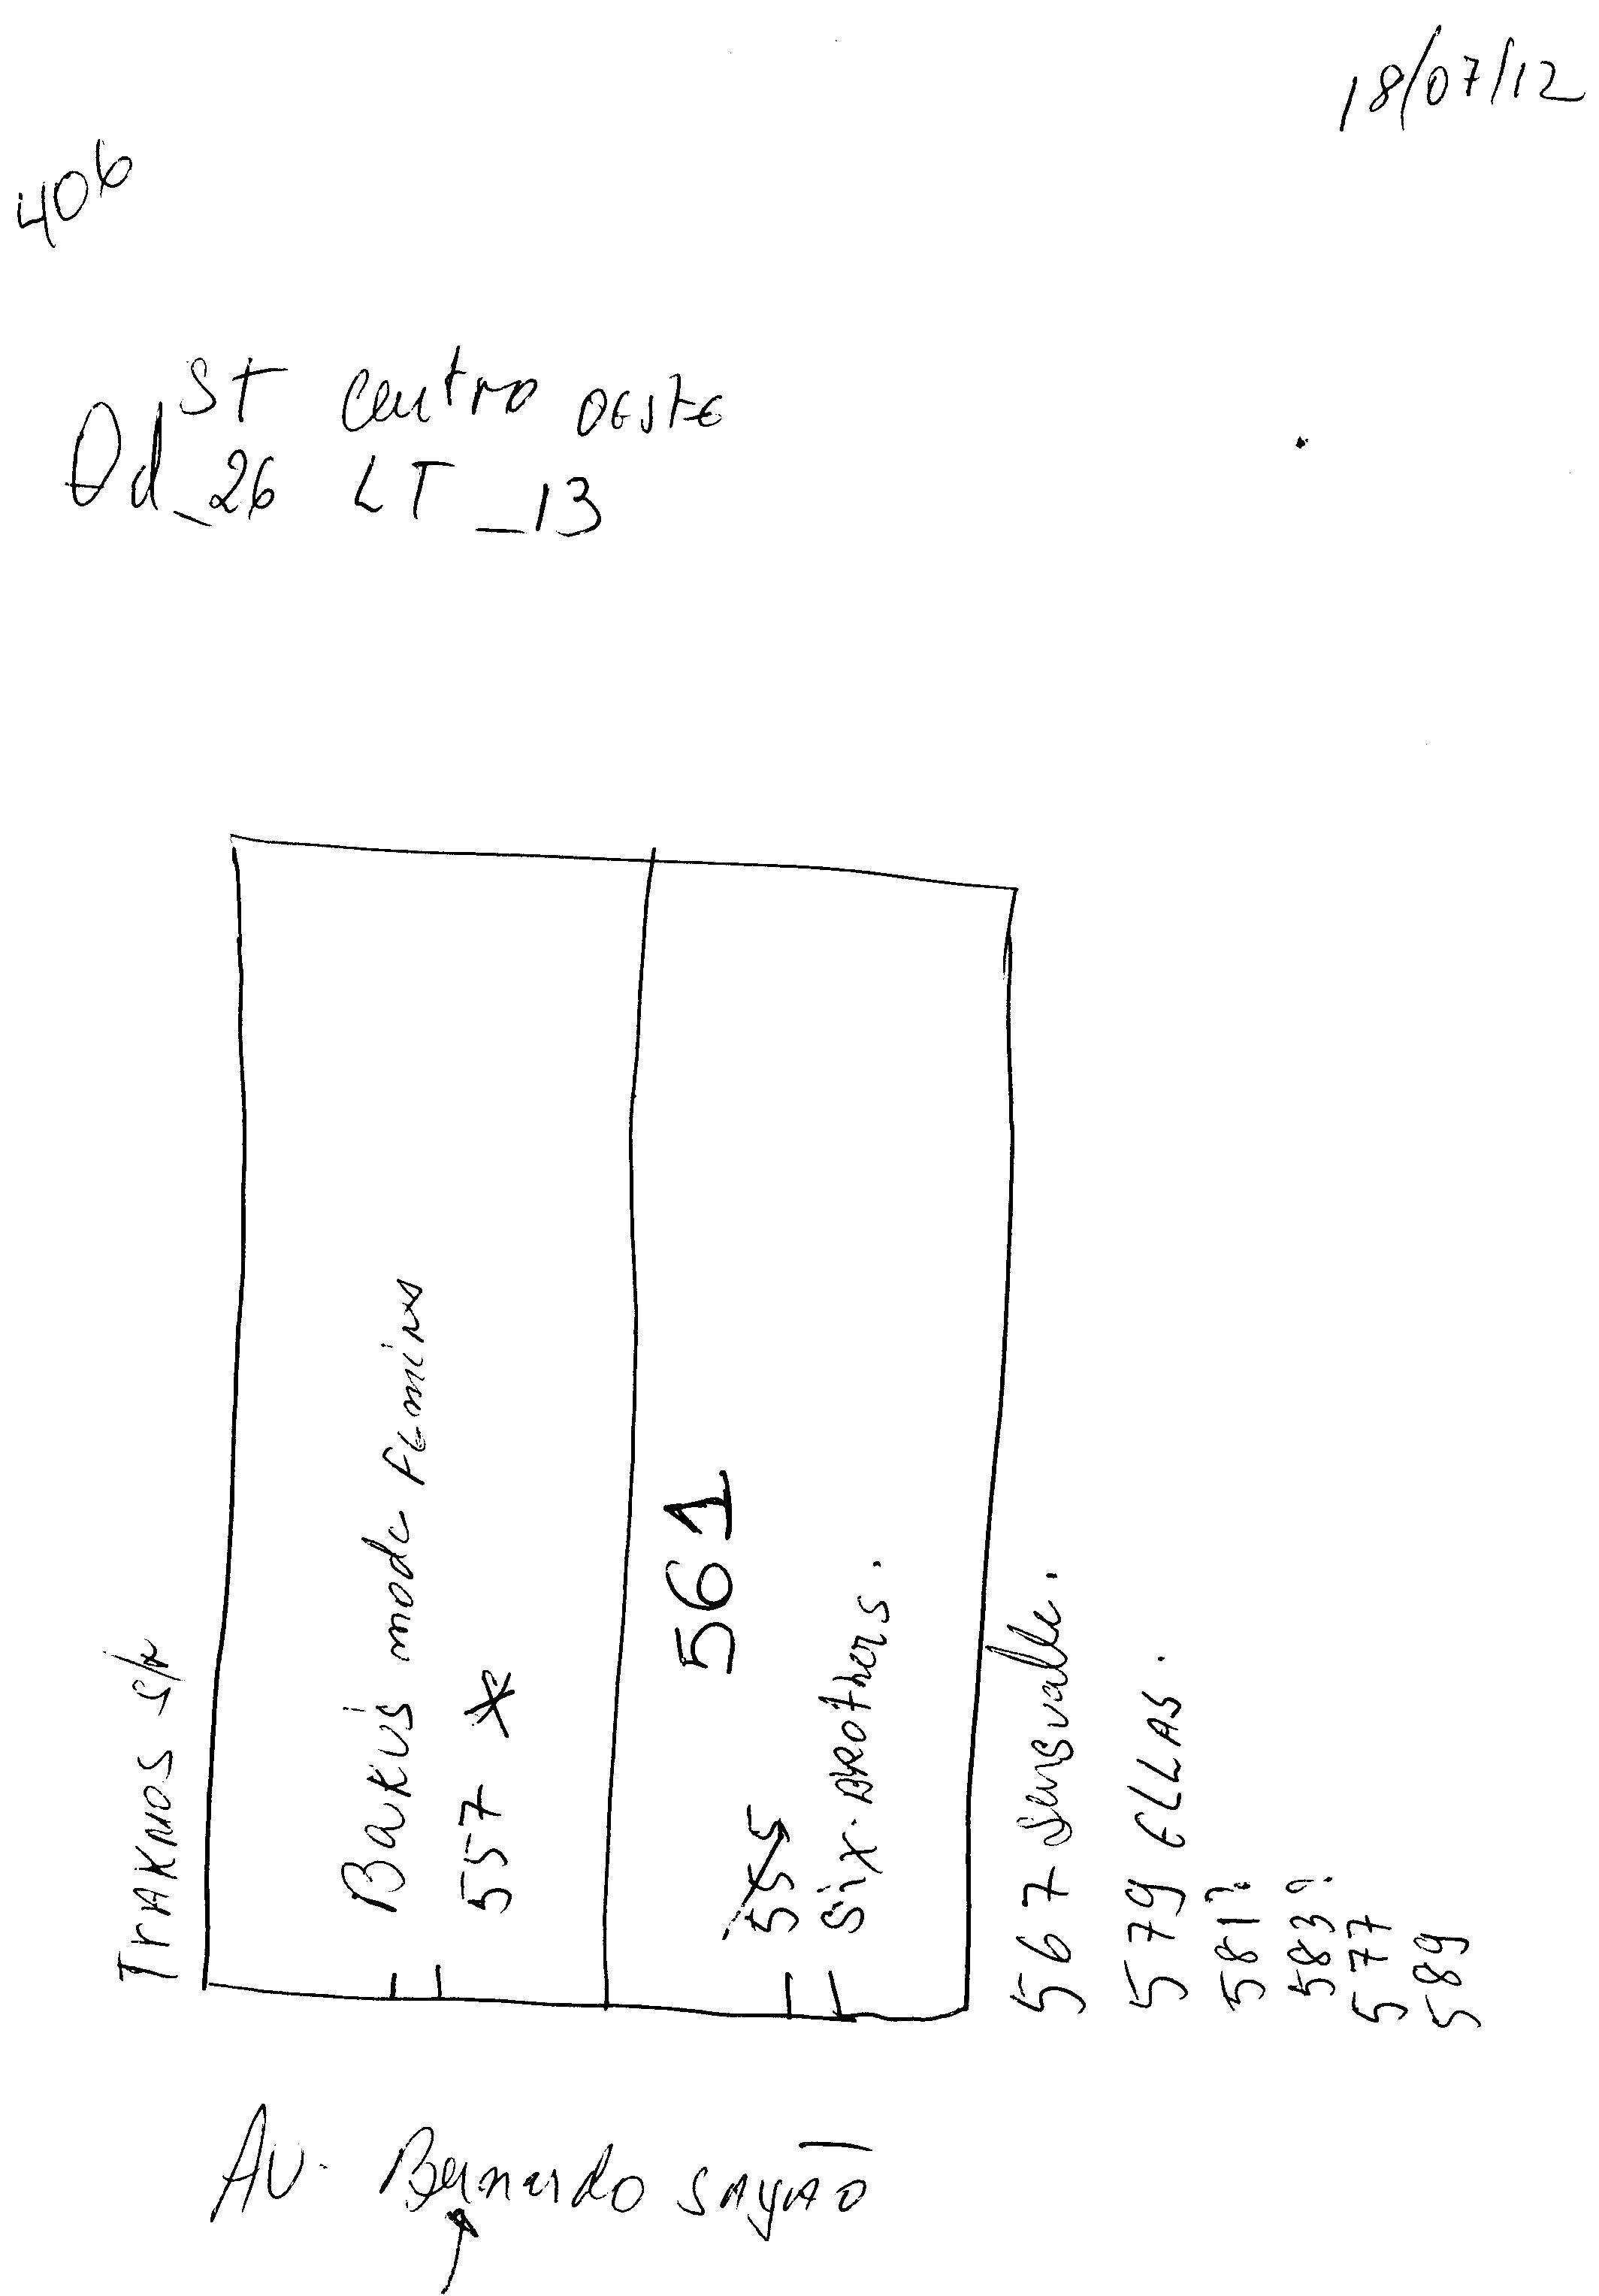 18/07/12
406
ST Centro OESTE
Qd_26 LT_13
TrAKNOS S/N
BaKus moda Feminina
557 *
561
555
Six Brothers.
567 Sensualle.
579 ELLAS.
581?
583?
577
589
AV. Bernardo SAYÃO